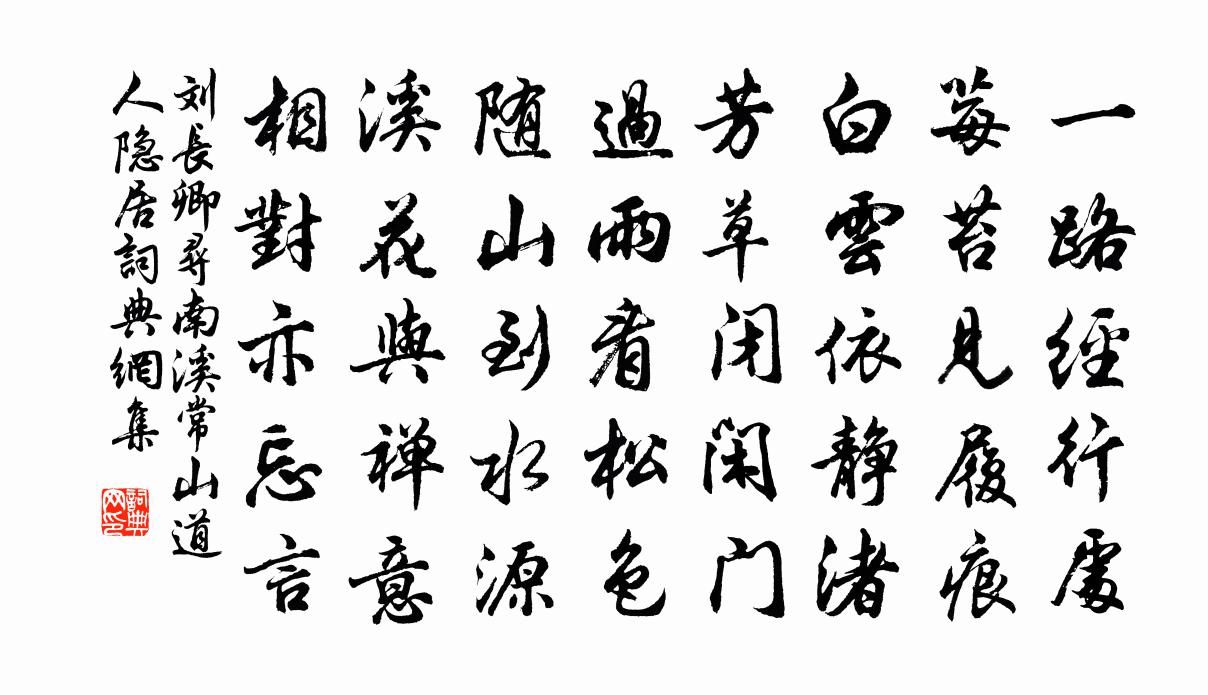 一路經行處
莓苔見履痕
白雲依靜渚
芳草閉閑門
過雨看松色
随山到水源
溪花與禅意
相對亦忘言
刘長卿尋南溪常山道
人隐居詞典網集
詞典
网印